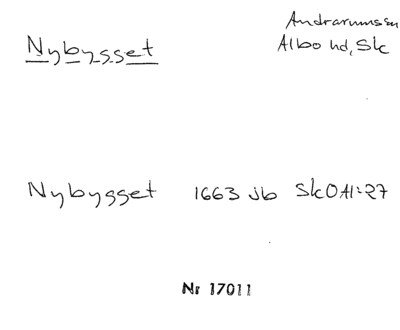 Nybygget
Andrarums sn
Albo hd, Sk
Nybygget 1663 Jb SkOA1:27
Nr 17011